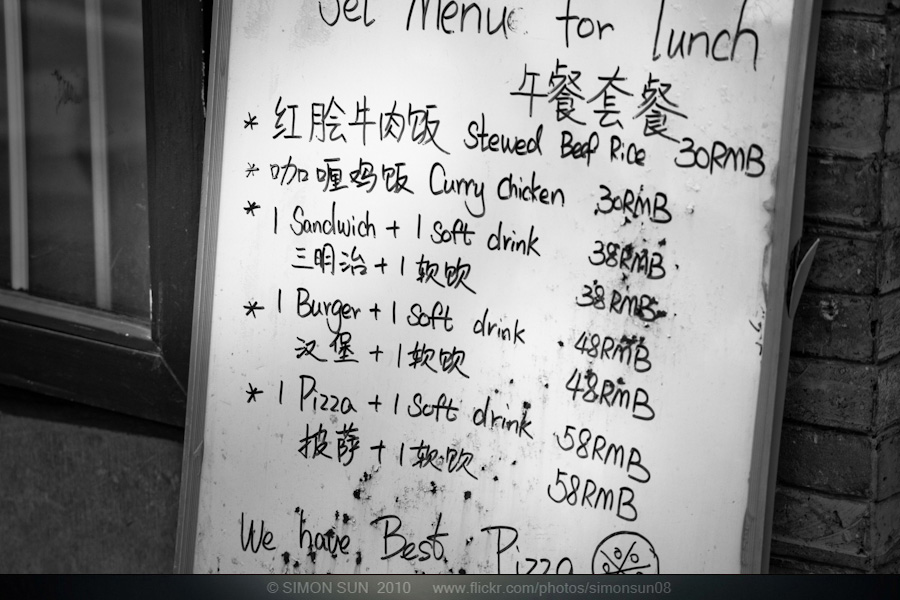 Set Menu for lunch
午餐套餐
* 红脍牛肉饭 Stewed Beef Rice 30RMB
* 咖喱鸡饭 Curry Chicken 30RMB
* 1 Sandwich + 1 Soft drink 38RMB
三明治 + 1 软饮 38RMB
* 1 Burger + 1 Soft drink 48RMB
汉堡 + 1 软饮 48RMB
* 1 Pizza + 1 Soft drink 58RMB
披萨 + 1 软饮 58RMB
We have Best Pizza
© SIMON SUN 2010 www.flickr.com/photos/simonsun08